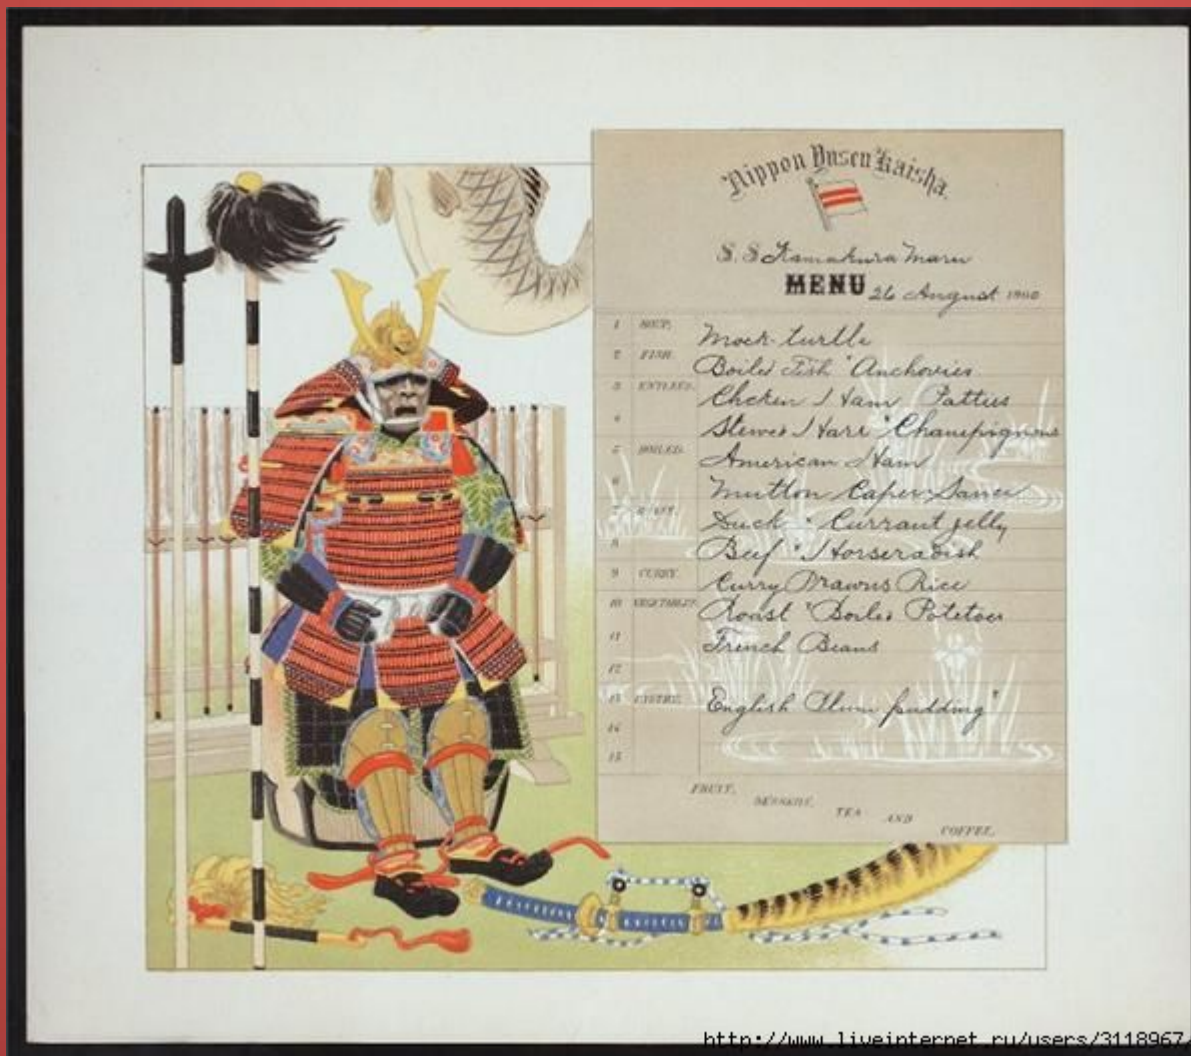 Nippon Yusen Kaisha.
S. S Kamakura Maru
MENU 26 August 1900
1 SOUP. Mock-turtle
2 FISH. Boiled Fish " Anchovies
3 ENTREES. Chicken & Ham Patties
4 Stewed Hare " Champignons
5 BOILED. American Ham
6 Mutton Caper Sauce
7 ROAST. Duck " Currant jelly
8 Beef " Horseradish
9 CURRY. Curry Prawns Rice
10 VEGETABLES. Roast " Boiled Potatoes
11 French Beans
12
13 PASTRY. English Plum pudding "
14
15
FRUIT, DESSERT, TEA AND COFFEE,
http://www.liveinternet.ru/users/3118967/